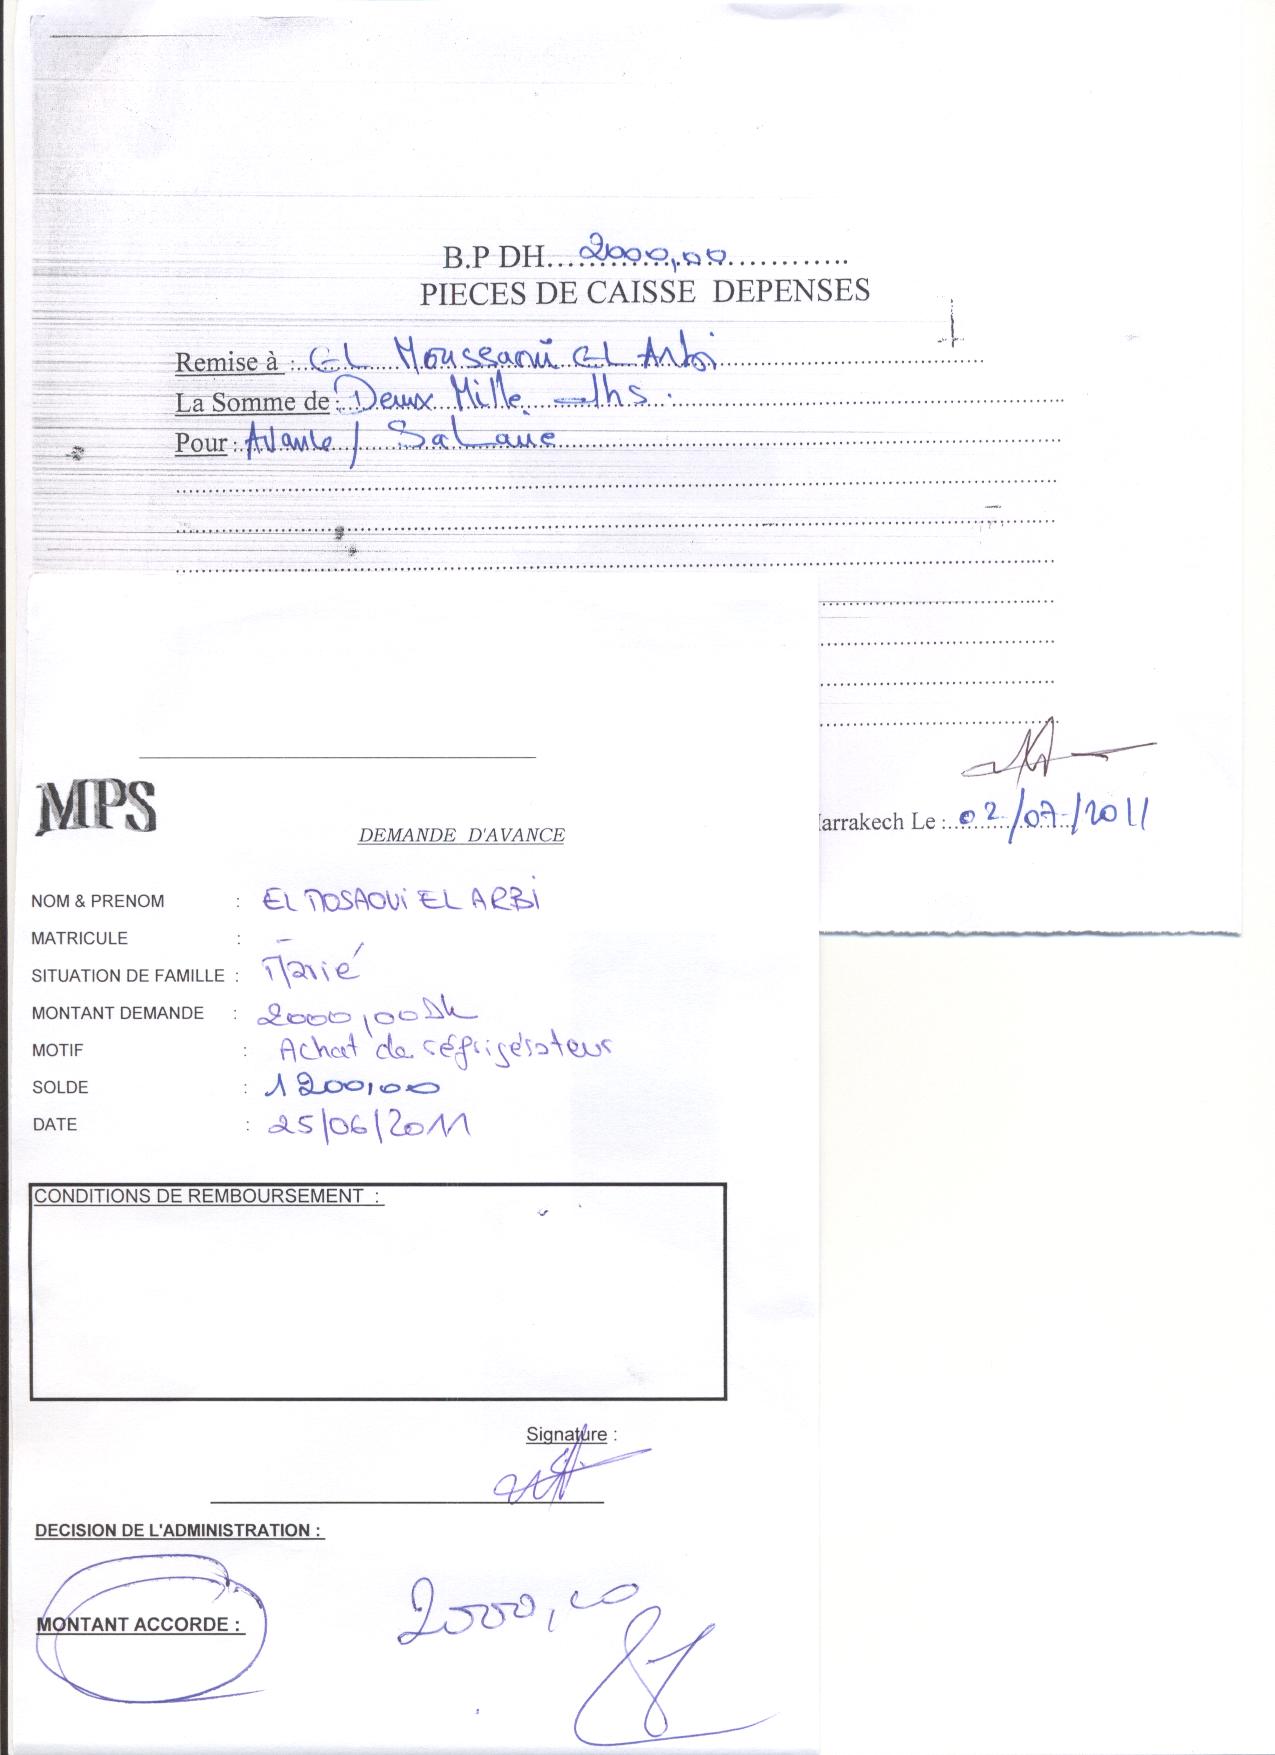 B.P DH....2000,00............
PIECES DE CAISSE DEPENSES
Remise à : EL Moussaoui EL Arbi
La Somme de : Deux Mille dhs.
Pour : Avance / Salaire
arrakech Le : 02/07/2011
MPS
DEMANDE D'AVANCE
NOM & PRENOM : EL MOSAOUI EL ARBI
MATRICULE : -
SITUATION DE FAMILLE : Marié
MONTANT DEMANDE : 2000,00 Dh
MOTIF : Achat de réfrigérateur
SOLDE : 1200,00
DATE : 25/06/2011
CONDITIONS DE REMBOURSEMENT :
Signature :
DECISION DE L'ADMINISTRATION :
MONTANT ACCORDE : 2000,00